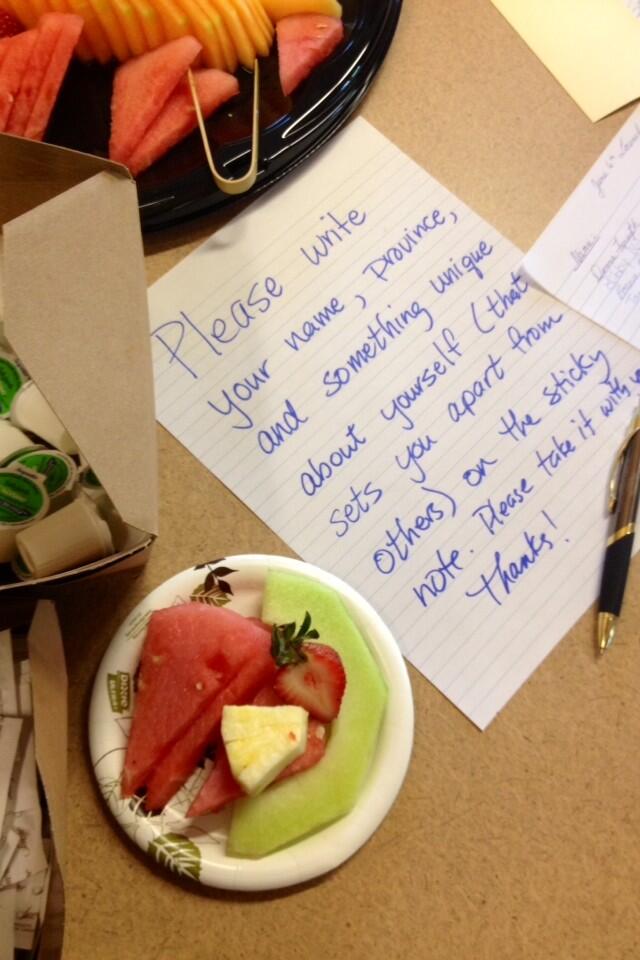 Please write
your name, province,
and something unique
about yourself (that
sets you apart from
others) on the sticky
note. Please take it with
Thanks!